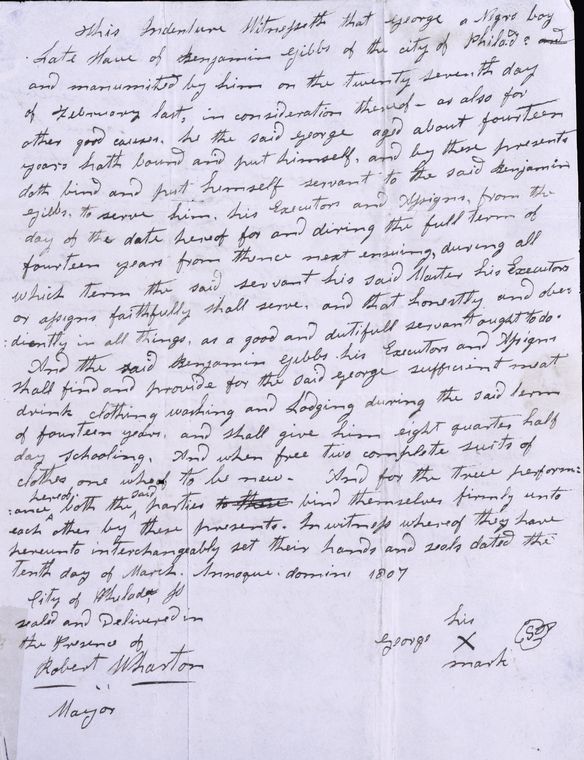 This Indenture Witnesseth that George a Negro boy
Late slave of Benjamin Gibbs of the city of Philada: and
and manumitted by him on the twenty seventh day
of February last, in consideration thereof - as also for
other good causes. he the said George aged about fourteen
years hath bound and put himself, and by these presents
doth bind and put hemself servant to the said Benjamin
Gibbs, to serve him, his Executors and Assigns, from the
day of the date hereof for and diring the full term of
fourteen years from thence next ensuing, during all
which term the said servant his said Master his Executors
or assigns faithfully shall serve, and that honestly and obe=
:diently in all things, as a good and dutifull servant ought to do.
And the said Benjamin Gibbs his Executors and Assigns
shall find and provide for the said George sufficient meat
drink clothing washing and Lodging during the said term
of fourteen years, and shall give him eight quarter half
day schooling. And when free two complete suits of
clothes one whereof to be new - And for the true perform=
:ance hereof both the said parties to these bind themselves firmly unto
each other by these presents. In witness whereof they have
hereunto interchangeably set their hands and seals dated the
tenth day of March. Annoque. domini 1807
City of Philada, ss
sealed and Delivered in
the Presence of
Robert Wharton
Mayor
his
George X
mark